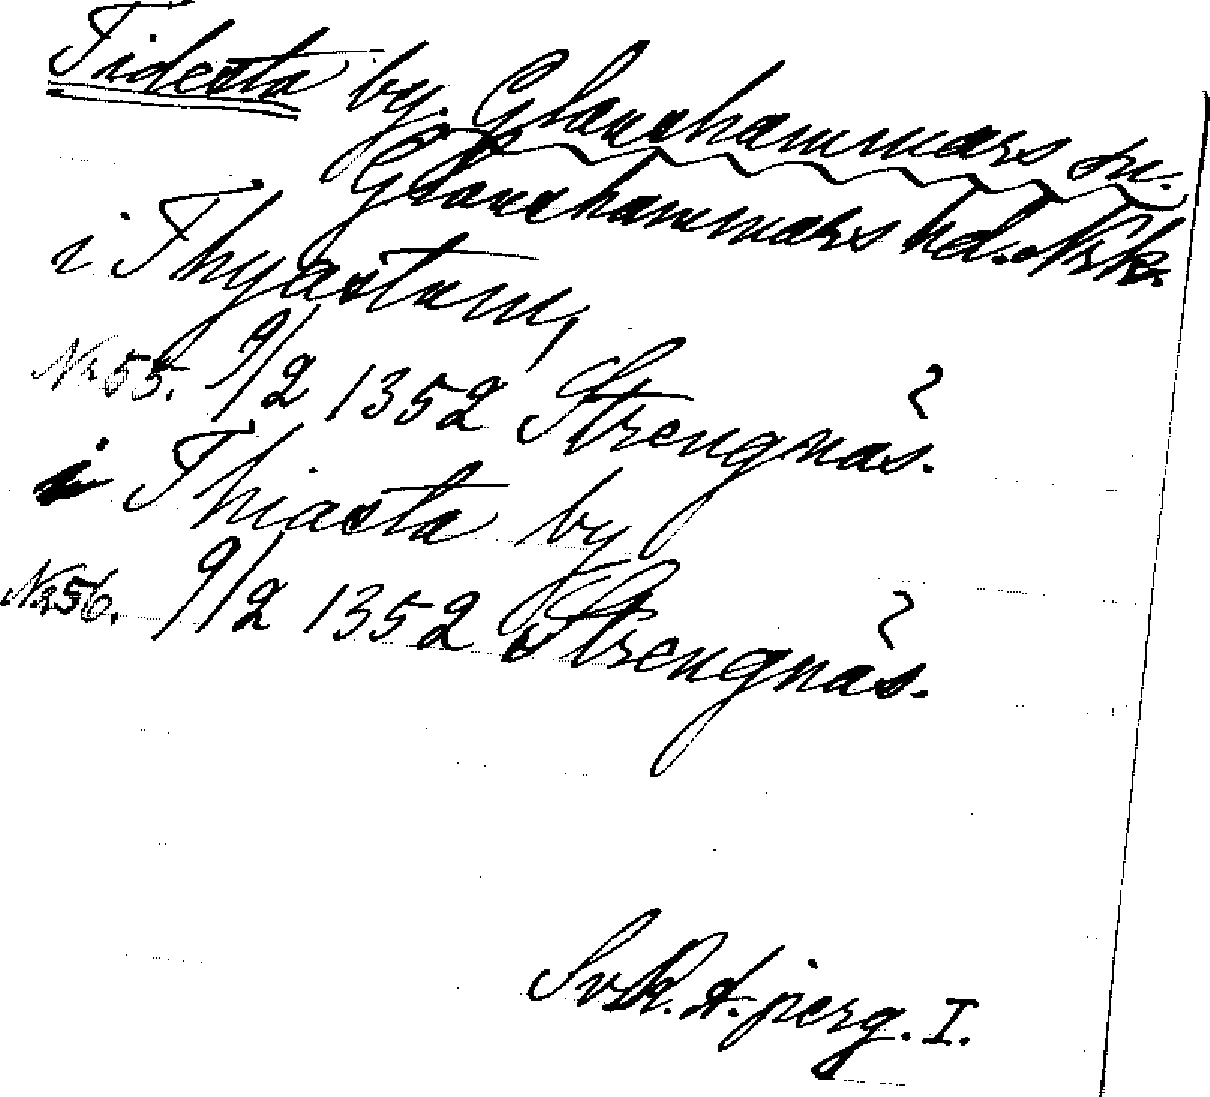 Tidesta by. Glanshammars sn.
Glanshammars hd. Nrk.
i Thyastum,
Nr 55. 9/2 1352 Strengnäs. ?
i Thiasta by
Nr 56. 9/2 1352 Strengnäs. ?
Sv.R.A. perg. I.